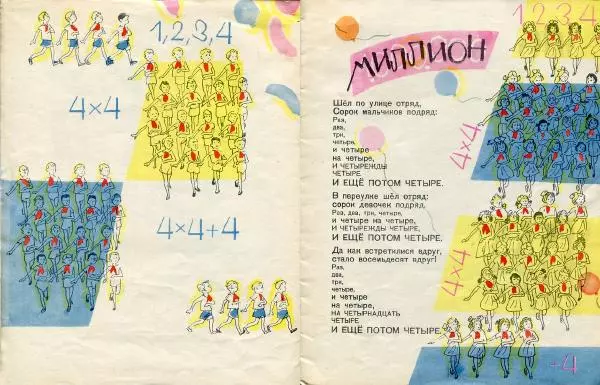 1,2,3,4
4×4
4×4+4
МИЛЛИОН
Шёл по улице отряд,
Сорок мальчиков подряд:
Раз,
два,
три,
четыре,
и четыре
на четыре,
И ЧЕТЫРЕЖДЫ
ЧЕТЫРЕ
И ЕЩЁ ПОТОМ ЧЕТЫРЕ.
В переулке шёл отряд:
сорок девочек подряд.
Раз, два, три, четыре,
и четыре на четыре,
И ЧЕТЫРЕЖДЫ ЧЕТЫРЕ,
И ЕЩЁ ПОТОМ ЧЕТЫРЕ.
Да как встретилися вдруг,
стало восемьдесят вдруг!
Раз,
два,
три,
четыре,
и четыре
на четыре,
НА ЧЕТЫРНАДЦАТЬ
ЧЕТЫРЕ
И ЕЩЁ ПОТОМ ЧЕТЫРЕ.
1,2,3,4
4×4
4×4
+4